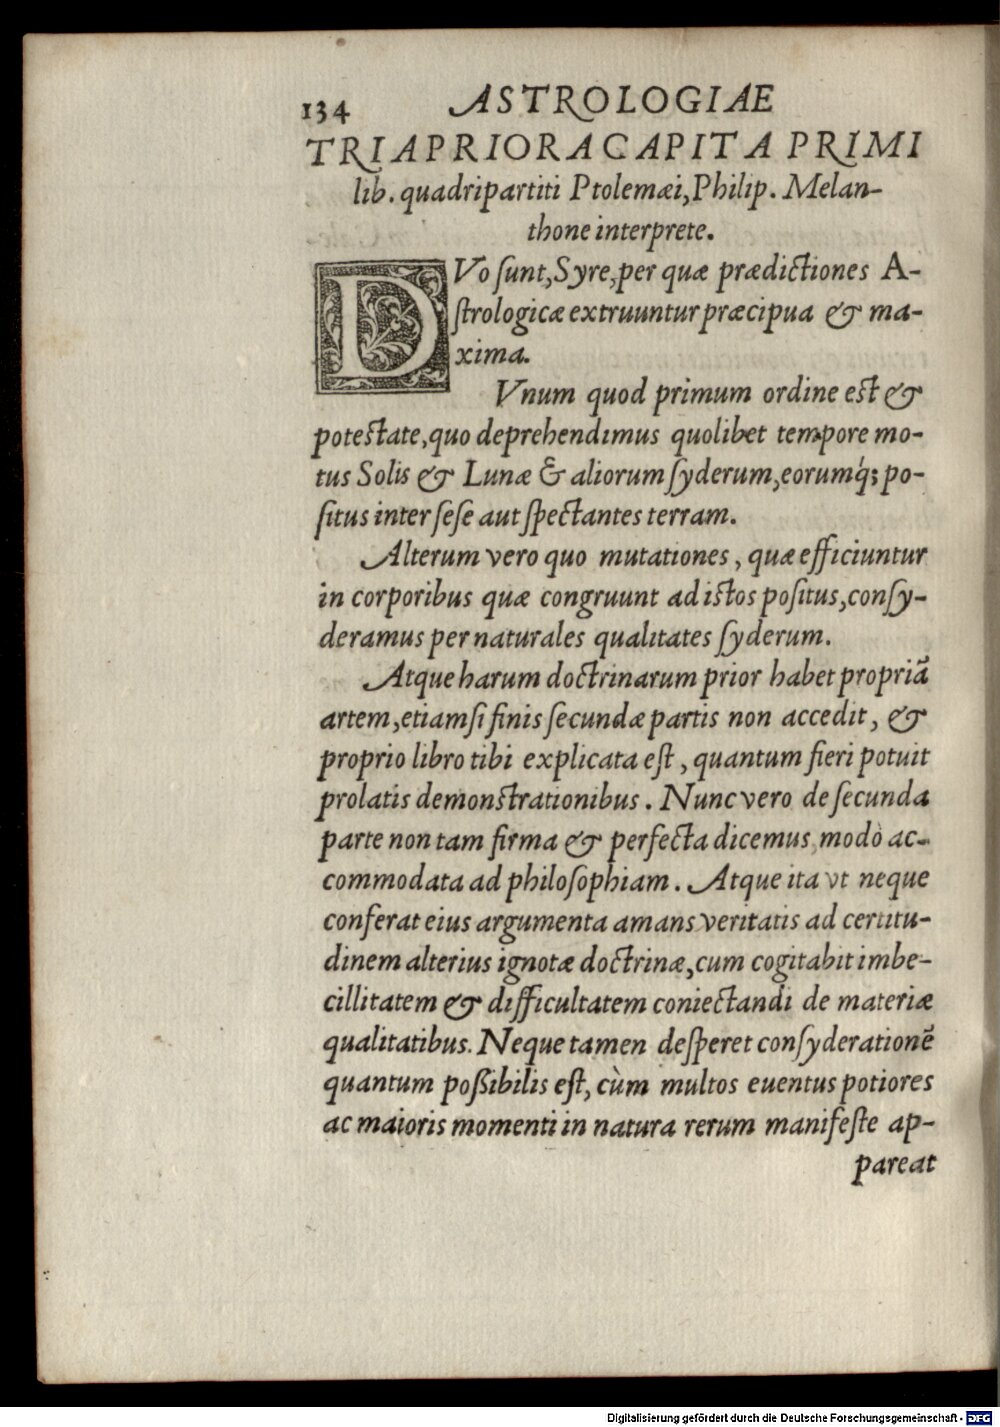 134 ASTROLOGIAE
TRIA PRIORA CAPITA PRIMI
lib. quadripartiti Ptolemæi, Philip. Melan-
thone interprete.
DVo ſunt, Syre, per quæ prædictiones A-
ſtrologicæ extruuntur præcipua & ma-
xima.
Vnum quod primum ordine est &
potestate, quo deprehendimus quolibet tempore mo-
tus Solis & Lunæ & aliorum ſyderum, eorumq́; po-
ſitus inter ſeſe aut ſpectantes terram.
Alterum vero quo mutationes, quæ efficiuntur
in corporibus quæ congruunt ad istos poſitus, conſy-
deramus per naturales qualitates ſyderum.
Atque harum doctrinarum prior habet propriã
artem, etiamſi finis ſecundæ partis non accedit, &
proprio libro tibi explicata eſt, quantum fieri potuit
prolatis demonstrationibus. Nunc vero de ſecunda
parte non tam firma & perfecta dicemus modò ac-
commodata ad philoſophiam. Atque ita vt neque
conferat eius argumenta amans veritatis ad certitu-
dinem alterius ignotæ doctrinæ, cum cogitabit imbe-
cillitatem & difficultatem coniectandi de materiæ
qualitatibus. Neque tamen deſperet conſyderationẽ
quantum poßibilis eſt, cùm multos euentus potiores
ac maioris momenti in natura rerum manifeſte ap-
pareat
Digitalisierung gefördert durch die Deutsche Forschungsgemeinschaft - DFG